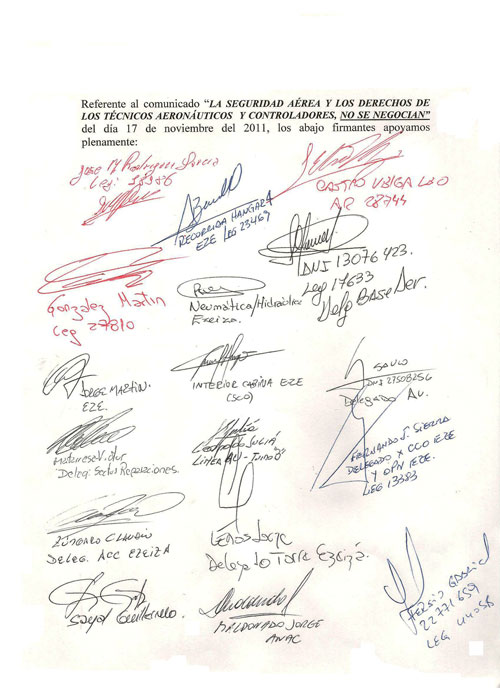 Referente al comunicado “LA SEGURIDAD AÉREA Y LOS DERECHOS DE
LOS TÉCNICOS AERONÁUTICOS Y CONTROLADORES, NO SE NEGOCIAN”
del día 17 de noviembre del 2011, los abajo firmantes apoyamos
plenamente:
Jose M Rodriguez
Leg:
CASTRO VEIGA LEO
AR 28744
RECORRIDA HANGAR 4
EZE LEG 23469
DNI 13076423.
Leg 17633
Deleg Base Aer.
Gonzalez Martin
Leg 27810
Neumática/Hidráulica
Ezeiza.
JORGE MARTIN.
EZE.
INTERIOR CABINA EZE
SAULO
DNI 23508256
Delegado Av.
Deleg: Sector Reparaciones.
JULIÁ
FERNANDO J. SIERRA
DELEGADO X CCO EZE
Y OPN EZE.
LEG 13383
CLAUDIO
DELEG. ACC EZEIZA
Jorge
Delegado Torre Ezeiza.
Guillermo
MALDONADO JORGE
ANAC
22771659
LEG